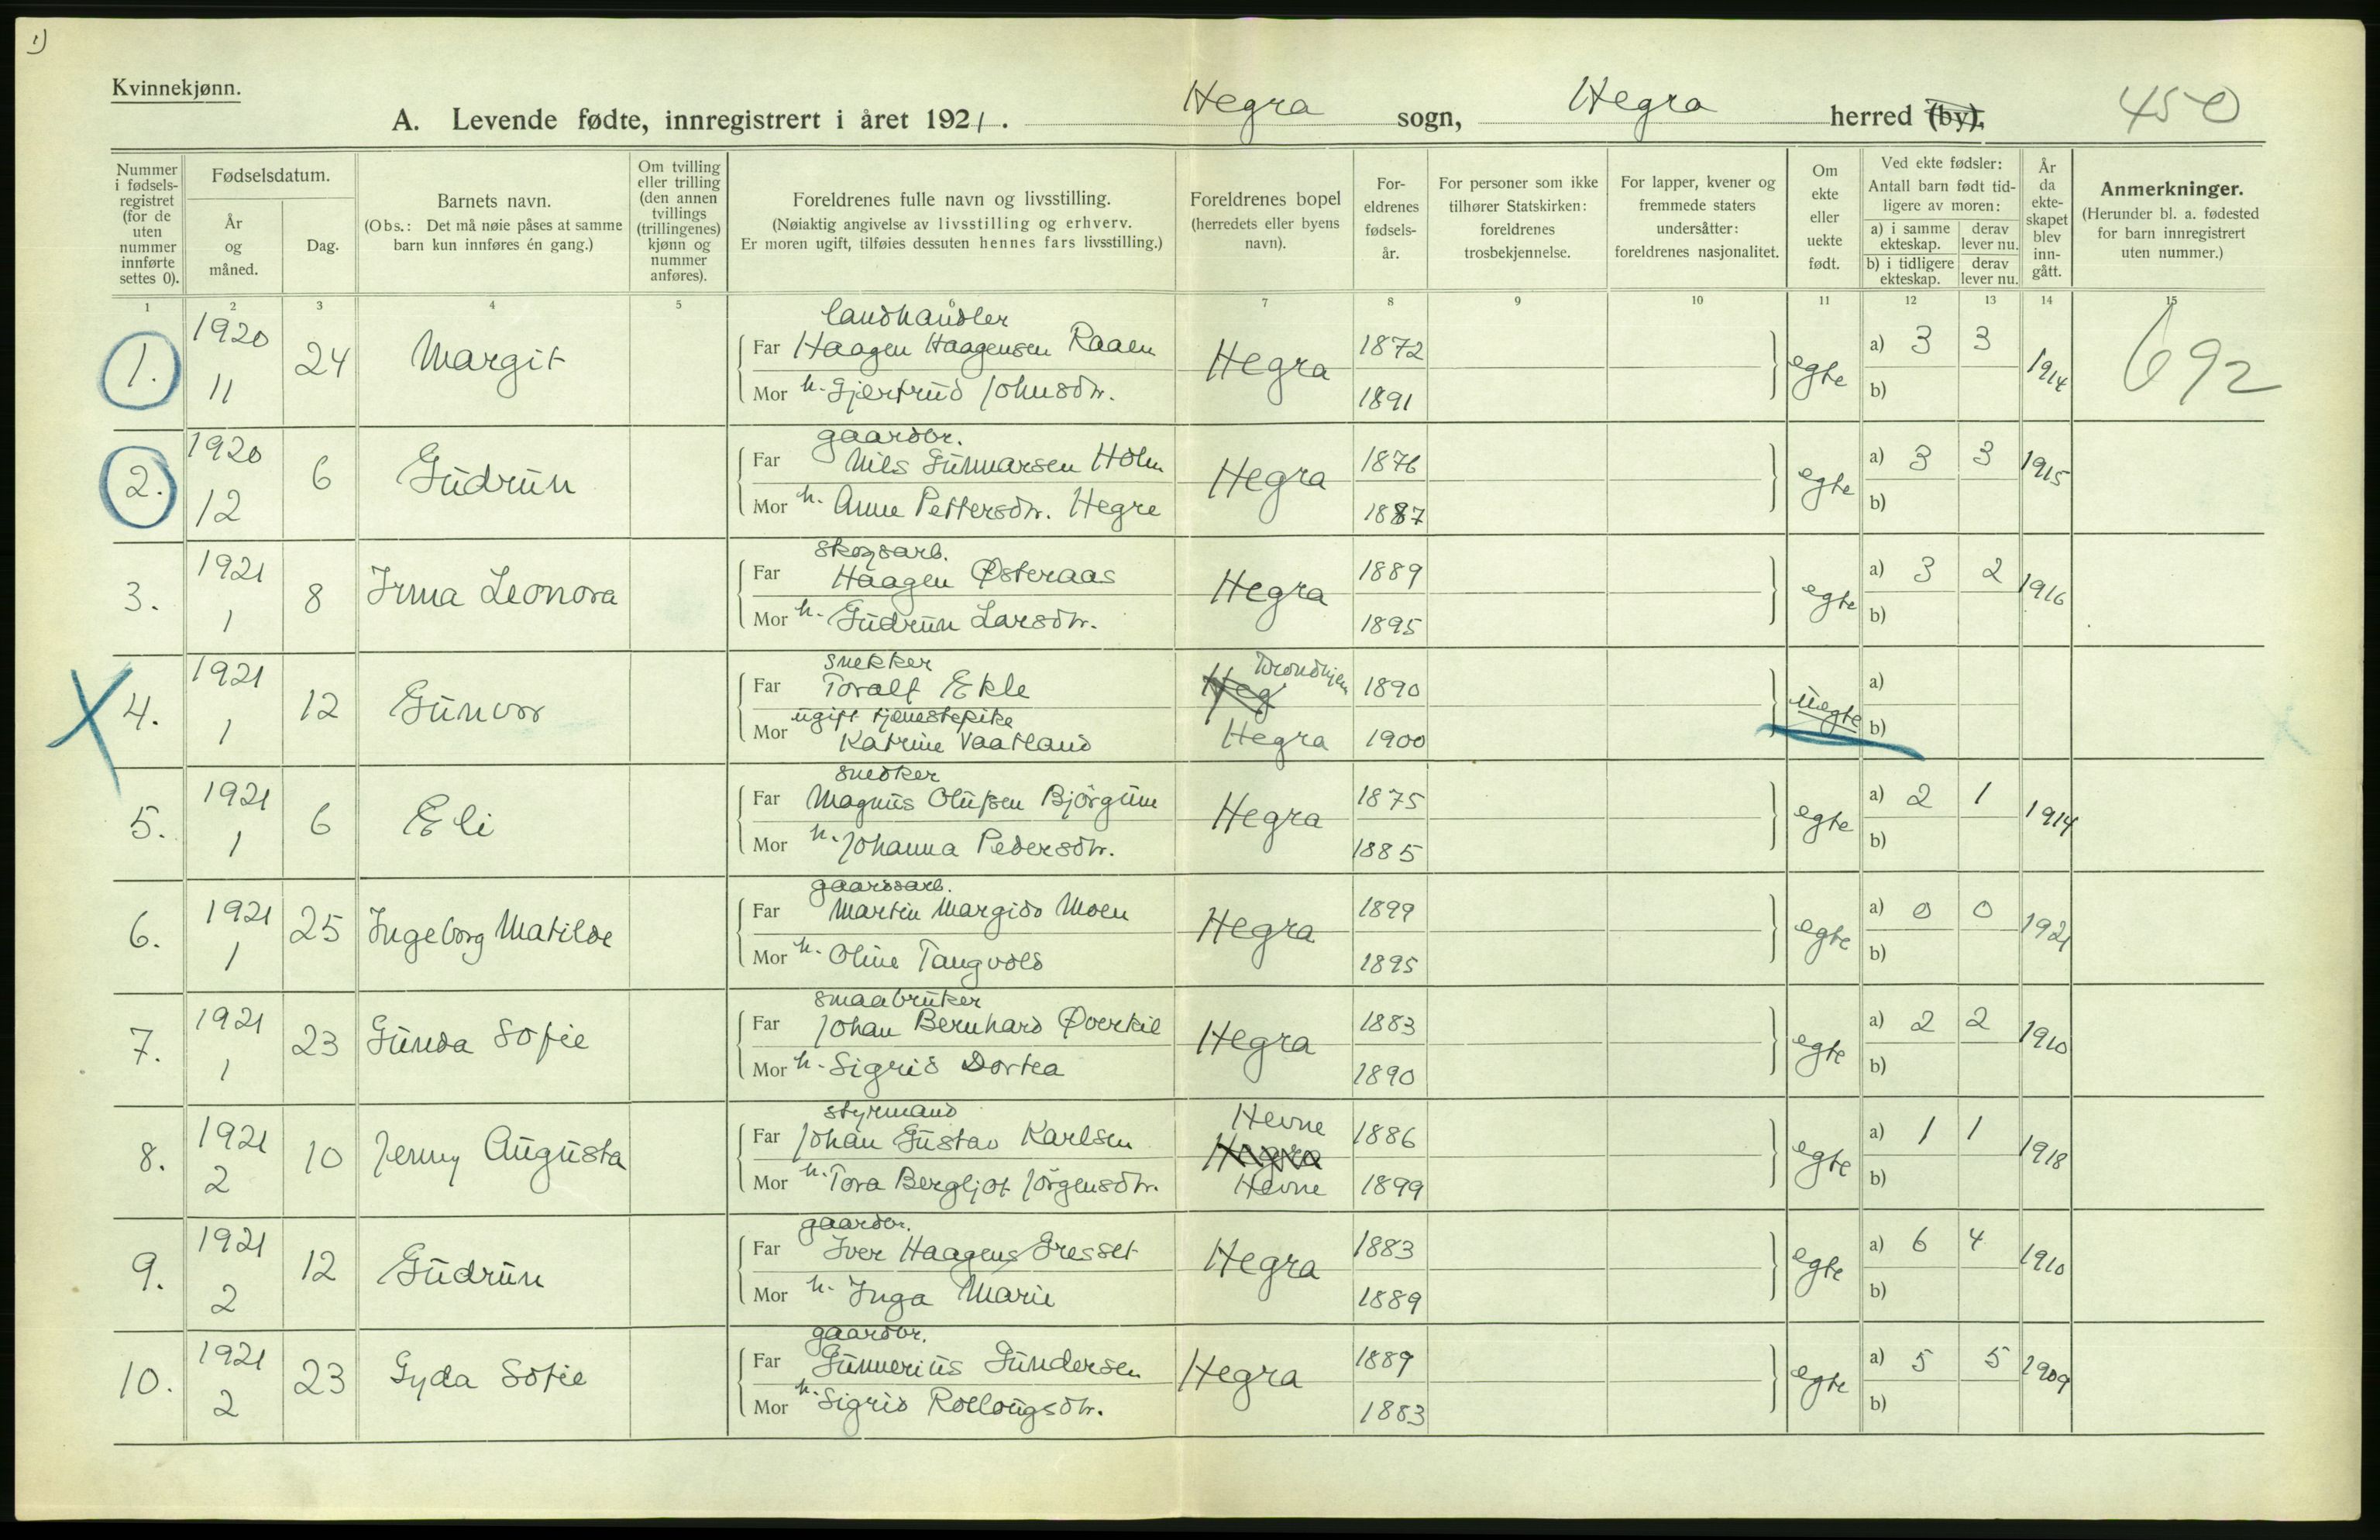 1)
Kvinnekjønn.
A. Levende fødte, innregistrert i året 1921. Hegra sogn, Hegra herred (by). 450
Nummer i fødsels-registret (for de uten nummer innførte settes 0).
Fødselsdatum.
År og måned.
Dag.
Barnets navn.
(Obs.: Det må nøie påses at samme barn kun innføres én gang.)
Om tvilling eller trilling (den annen tvillings (trillingenes) kjønn og nummer anføres).
Foreldrenes fulle navn og livsstilling.
(Nøiaktig angivelse av livsstilling og erhverv.
Er moren ugift, tilføies dessuten hennes fars livsstilling.)
Foreldrenes bopel (herredets eller byens navn).
For-eldrenes fødsels-år.
For personer som ikke tilhører Statskirken: foreldrenes trosbekjennelse.
For lapper, kvener og fremmede staters undersåtter: foreldrenes nasjonalitet.
Om ekte eller uekte født.
Ved ekte fødsler:
Antall barn født tid-ligere av moren:
a) i samme ekteskap.
derav lever nu.
b) i tidligere ekteskap.
derav lever nu.
År da ekte-skapet blev inn-gått.
Anmerkninger.
(Herunder bl. a. fødested for barn innregistrert uten nummer.)
1 2 3 4 5 6 7 8 9 10 11 12 13 14 15
landhandler
1. 1920 11 24 Margit Far Haagen Haagensen Raaen Hegra 1872 egte a) 3 3 1914 692
Mor h. Gjertrud Johnsdtr. 1891 b)
gaardbr.
2. 1920 12 6 Gudrun Far Nils Gunnarsen Holm Hegra 1876 egte a) 3 3 1915
Mor h. Anne Pettersdtr. Hegre 1887 b)
skogsarb.
3. 1921 1 8 Irma Leonora Far Haagen Østeraas Hegra 1889 egte a) 3 2 1916
Mor h. Gudrun Larsdtr. 1895 b)
snekker
4. 1921 1 12 Gunvor Far Toralf Ekle Heg Trondhjem 1890 uegte a)
ugift tjenestepike
Mor Katrine Vaatland Hegra 1900 b)
snedker
5. 1921 1 6 Eli Far Magnus Olufsen Bjørgum Hegra 1875 egte a) 2 1 1914
Mor h. Johanna Pedersdtr. 1885 b)
gaardsarb.
6. 1921 1 25 Ingeborg Matilde Far Martin Margido Moen Hegra 1899 egte a) 0 0 1921
Mor h. Oline Tangvold 1895 b)
smaabruker
7. 1921 1 23 Gunda Sofie Far Johan Bernhard Øverkil Hegra 1883 egte a) 2 2 1910
Mor h. Sigrid Dortea 1890 b)
styrmand
8. 1921 2 10 Jenny Augusta Far Johan Gustav Karlsen Hevne Hegra 1886 egte a) 1 1 1918
Mor h. Tora Bergljot Jörgensdtr. Hevne 1899 b)
gaardbr.
9. 1921 2 12 Gudrun Far Iver Haagens Gresset Hegra 1883 egte a) 6 4 1910
Mor h. Inga Marie 1889 b)
gaardbr.
10. 1921 2 23 Gyda Sofie Far Gunnerius Gundersen Hegra 1889 egte a) 5 5 1909
Mor h. Sigrid Rollougsdtr. 1883 b)